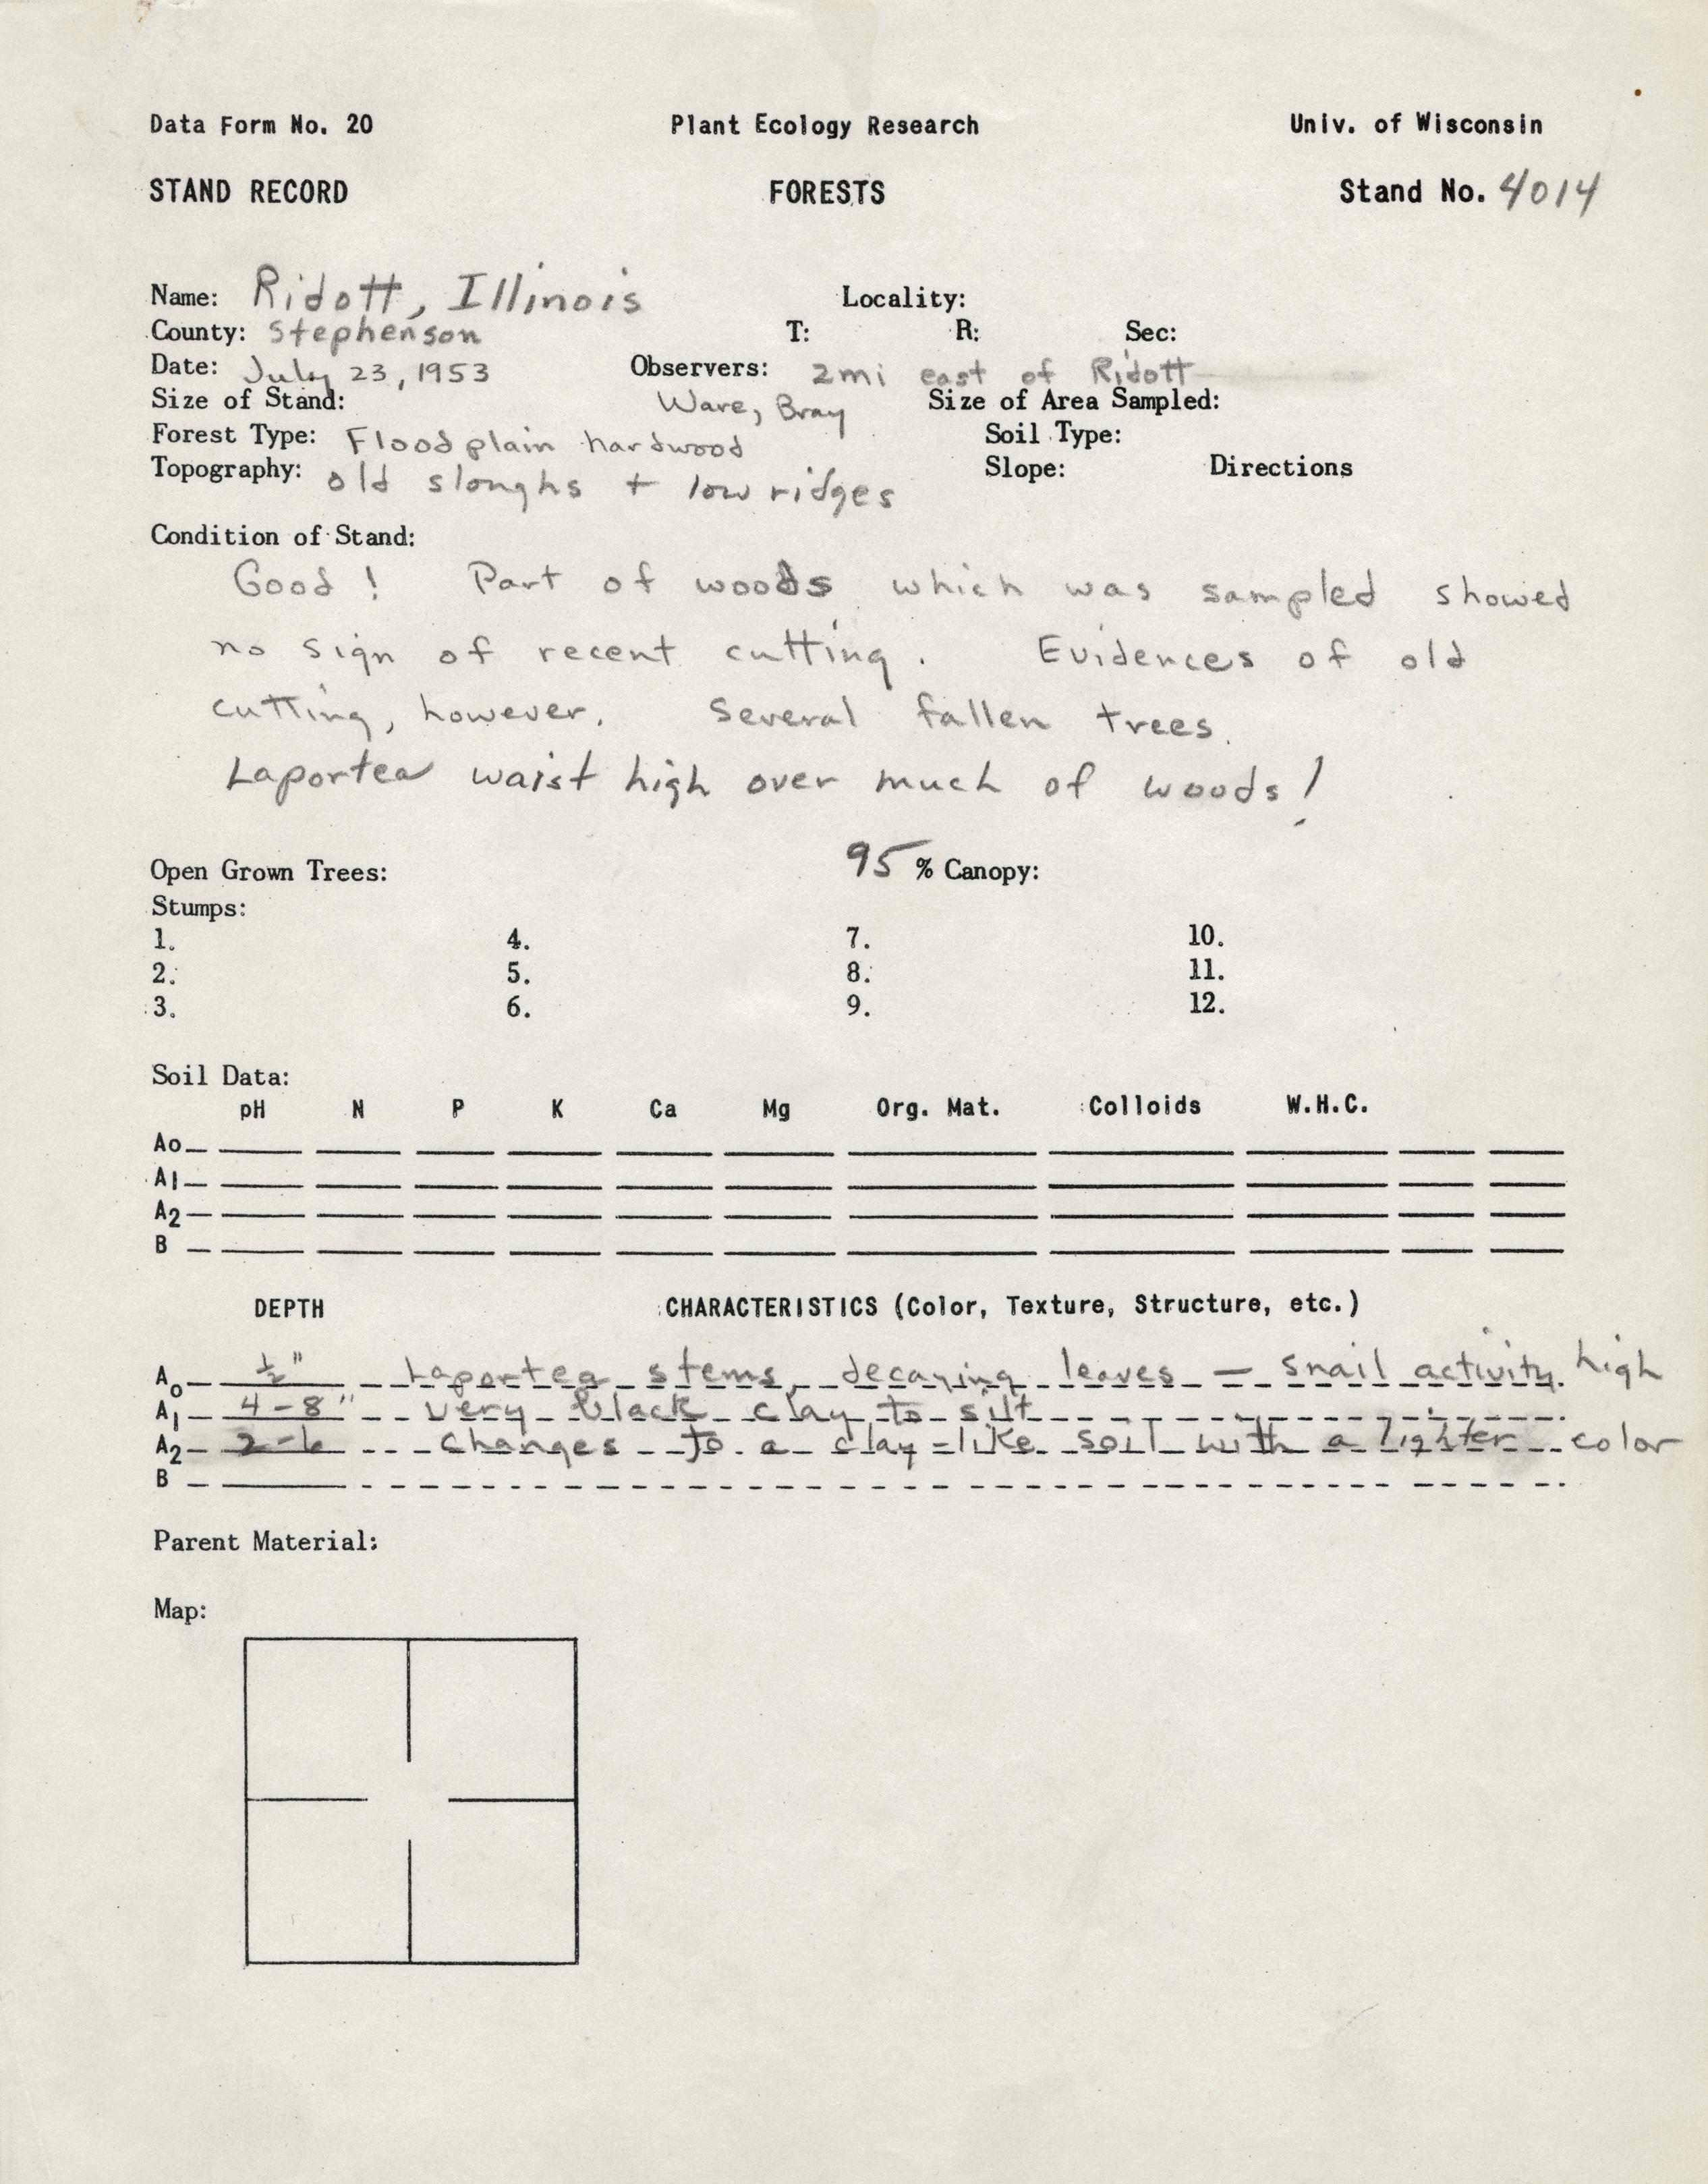 Data Form No. 20 Plant Ecology Research Univ. of Wisconsin
STAND RECORD FORESTS Stand No. 4014
Name: Ridott, Illinois Locality:
County: Stephenson T: R: Sec:
Date: July 23, 1953 Observers: 2mi east of Ridott
Size of Stand: Ware, Bray Size of Area Sampled:
Forest Type: Floodplain hardwood Soil Type:
Topography: old sloughs + low ridges Slope: Directions
Condition of Stand:
Good! Part of woods which was sampled showed
no sign of recent cutting. Evidences of old
cutting, however. Several fallen trees.
Laportea waist high over much of woods!
Open Grown Trees: 95 % Canopy:
Stumps:
1. 4. 7. 10.
2. 5. 8. 11.
3. 6. 9. 12.
Soil Data:
pH N P K Ca Mg Org. Mat. Colloids W.H.C.
Ao
A1
A2
B
DEPTH CHARACTERISTICS (Color, Texture, Structure, etc.)
Ao ½" Laportea stems, decaying leaves - snail activity high
A1 4-8" very black clay to silt
A2 changes to a clay-like soil with a lighter color
B
Parent Material:
Map: